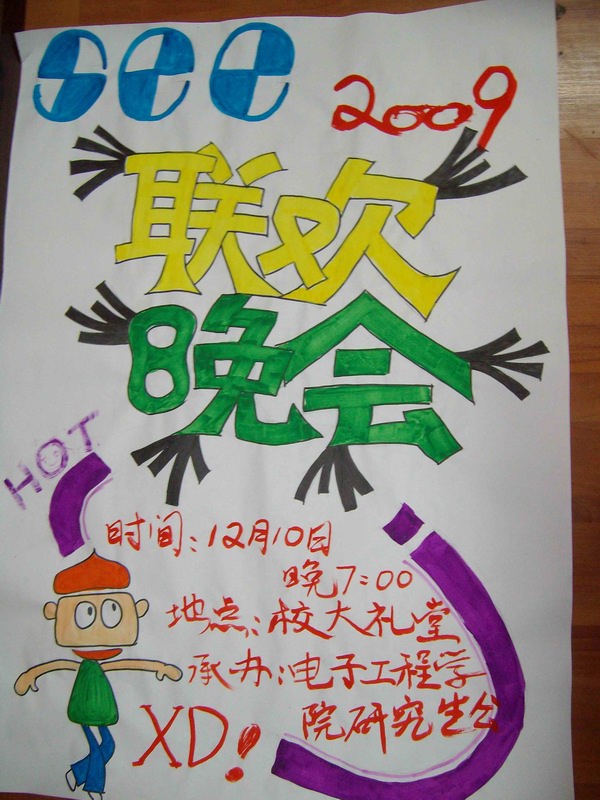 see
2009
联欢
晚会
HOT
时间:12月10日
晚7:00
地点:校大礼堂
承办:电子工程学
院研究生会
XD!